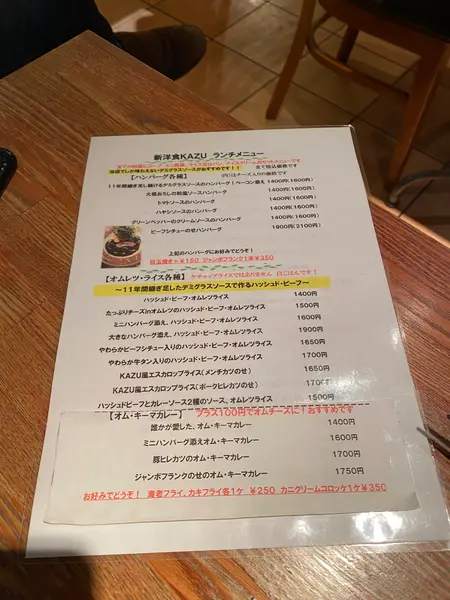 新洋食KAZU ランチメニュー
当店でしか味わえないデミグラスソースがおすすめです！！ 全て税込価格です
【ハンバーグ各種】 ()はチーズ入りの価格です
11年間継ぎ足し続けるデミグラスソースのハンバーグ！ベーコン添え 1400円(1600円)
大根おろしの和風ソースハンバーグ 1400円(1600円)
トマトソースのハンバーグ 1400円(1600円)
ハヤシソースのハンバーグ 1400円(1600円)
グリーンペッパーのクリームソースのハンバーグ 1400円(1600円)
ビーフシチューのせハンバーグ 1900円(2100円)
上記のハンバーグにお好みでどうぞ！
目玉焼き＋¥150 ジャンボフランク1本¥350
【オムレツ・ライス各種】 ケチャップライスではありません 白ごはんです！
～11年間継ぎ足したデミグラスソースで作るハッシュド・ビーフ～
ハッシュド・ビーフ・オムレツライス 1400円
たっぷりチーズinオムレツのハッシュド・ビーフ・オムレツライス 1500円
ミニハンバーグ添え、ハッシュド・ビーフ・オムレツライス 1600円
大きなハンバーグ添え、ハッシュド・ビーフ・オムレツライス 1900円
やわらかビーフシチュー入りのハッシュド・ビーフ・オムレツライス 1650円
やわらか牛タン入りのハッシュド・ビーフ・オムレツライス 1700円
KAZU風エスカロップライス(メンチカツのせ) 1650円
KAZU風エスカロップライス(ポークヒレカツのせ) 1700円
ハッシュドビーフとカレーソース2種のソース、オムレツライス 1500円
【オム・キーマカレー】 プラス100円でオムチーズに！おすすめです
誰かが愛した、オム・キーマカレー 1400円
ミニハンバーグ添えオム・キーマカレー 1600円
豚ヒレカツのオム・キーマカレー 1700円
ジャンボフランクのせのオム・キーマカレー 1750円
お好みでどうぞ！ 海老フライ、カキフライ各1ケ ¥250 カニクリームコロッケ1ケ¥350